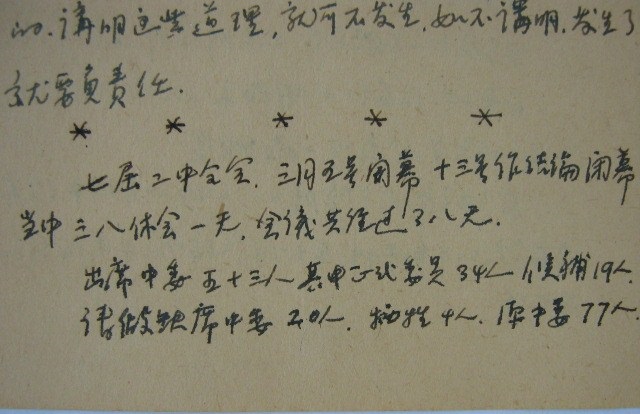 的.讲明这些道理,就可不发生,如不讲明,发生了
就要负责任.
* * * * *
七届二中全会.三月五号开幕 十三号作结论闭幕
当中三八休会一天,会议共经过了八天.
出席中委五十三人其中正式委员34人候补19人.
请假缺席中委20人.牺牲4人.原中委77人.